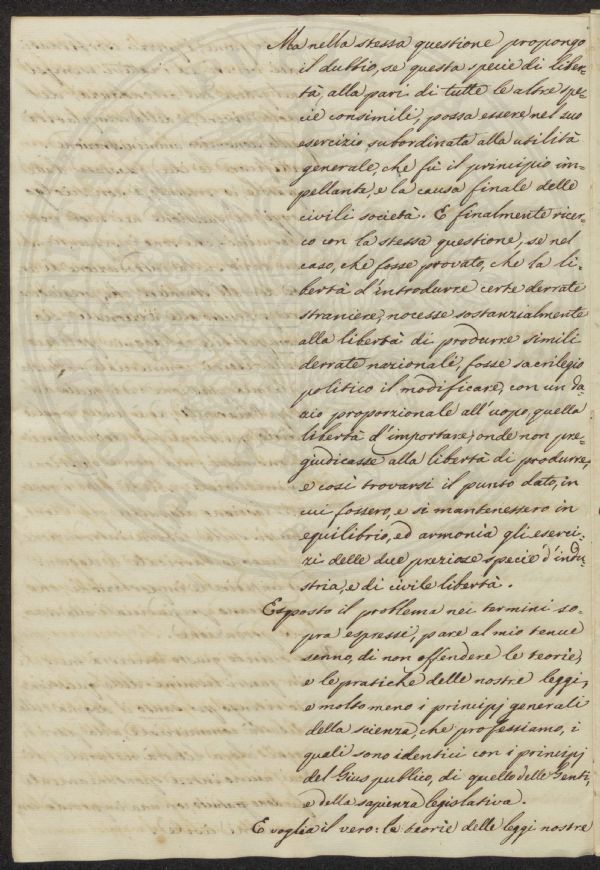 Ma nella stessa questione propongo
il dubbio, se questa specie di liber=
tà, alla pari di tutte le altre spe=
cie consimili, possa essere, nel suo
esercizio, subordinata alla utilità
generale, che fù il principio im=
pellante, e la causa finale delle
civili società. E finalmente ricer=
co con la stessa questione, se nel
caso, che fosse provato, che la li=
bertà d'introdurre certe derrate
straniere, nocesse sostanzialmente
alla libertà di produrre simili
derrate nazionali, fosse sacrilegio
politico il modificare, con un da=
zio proporzionale all'uopo, quella
libertà d'importare, onde non pre=
giudicasse alla libertà di produrre,
e così trovarsi il punto dato, in
cui fossero, e si mantenessero in
equilibrio, ed armonia gli eserci=
zi delle due preziose specie d'indu=
stria, e di civile libertà.
Esposto il problema nei termini so=
pra espressi, pare al mio tenue
senno, di non offendere le teorie,
e le pratiche delle nostre leggi,
e molto meno i principj generali
della scienza, che professiamo, i
quali sono identici con i principj
del Gius publico, di quello delle Genti,
e della sapienza legislativa.
E voglia il vero: le teorie delle leggi nostre